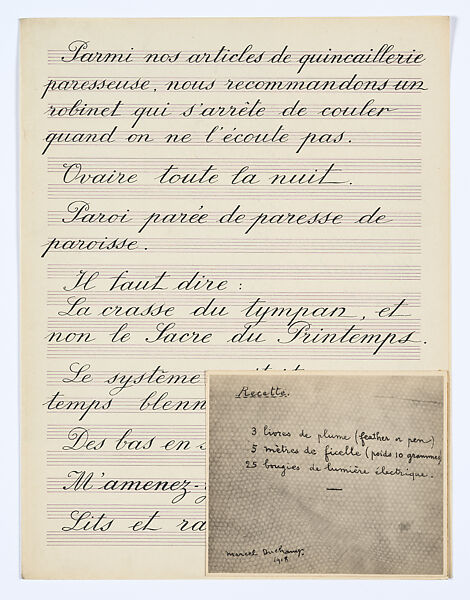 Parmi nos articles de quincaillerie
paresseuse, nous recommandons un
robinet qui s'arrête de couler
quand on ne l'écoute pas.
Ovaire toute la nuit.
Paroi parée de paresse de
paroisse.
Il faut dire :
La crasse du tympan, et
non le Sacre du Printemps.
Le système
temps blenn
Des bas en s
M'amenez-y
Lits et ra
Recette.
3 livres de plume (feather or pen)
5 mètres de ficelle (poids 10 grammes)
25 bougies de lumière électrique.
marcel Duchamp.
1918